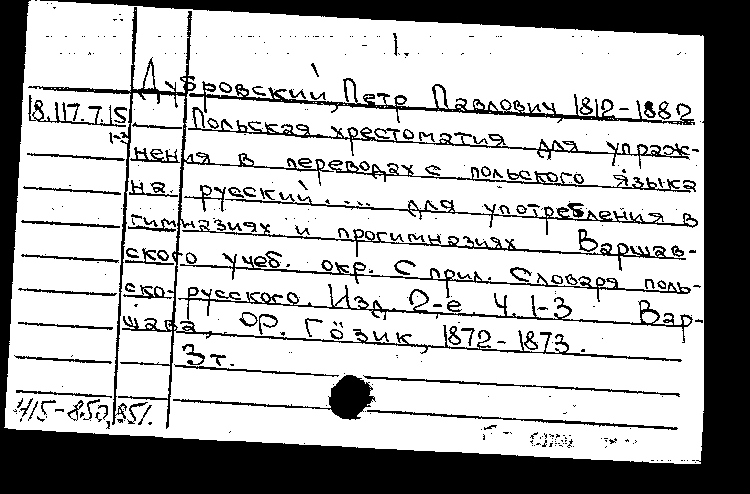 1.
Дубровский, Петр Павлович, 1812-1882
18.117.7.15. Польская хрестоматия для упраж-
1-3
нения в переводах с польского языка
на русский .... для употребления в
гимназиях и прогимназиях Варшав-
ского учеб. окр. С прил. Словаря поль-
ско-русского. Изд. 2-е. Ч. 1-3 Вар-
шава, Ор. Гёзик, 1872-1873.
3 т.
415-850,851.